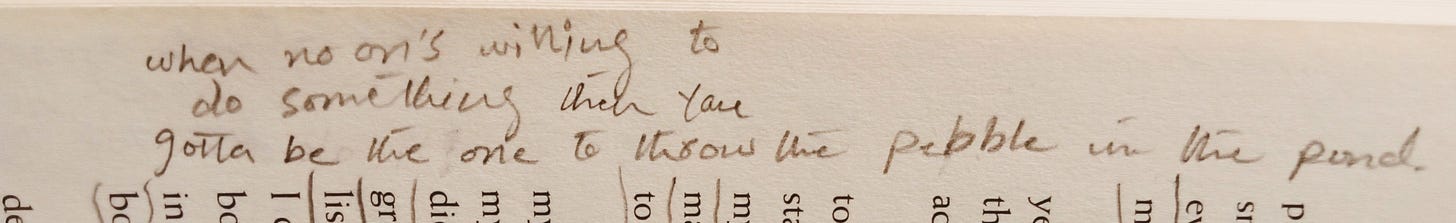 when no on's willing to
do something then you
gotta be the one to throw the pebble in the pond.